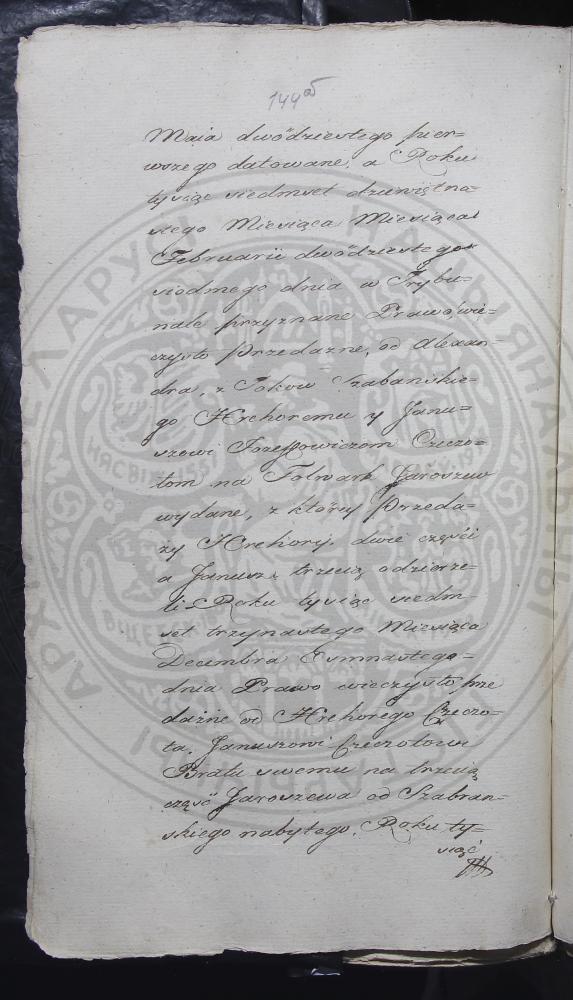 144об
Maia dwódziestego pier=
wszego datowane, a Roku
tysiąc siedmset dziewiętna=
stego Miesiąca Miesiąca
Februarii dwódziestego
siodmego dnia w Trybu=
nale przyznane Prawo, wie=
czysto Przedażne, od Alexan=
dra, z Tokow Szabańskie=
go Hrehoremu y Janu=
szowi Jozeffowiczom Czeczo=
tom na Folwark Jaroszew
wydane, z który Przeda=
ży Hrehory dwie części
a Janusz trzecią odzierże=
li Roku tysiąc siedm=
set trzynastego Miesiąca
Decembra Osmnastego=
dnia Prawo wieczysto prze
dażne od Hrehorego Czeczo=
ta, Januszowi Czeczotowi
Bratu swemu na trzecią
część Jaroszewa od Szabran=
skiego nabytego. Roku ty=
siąc